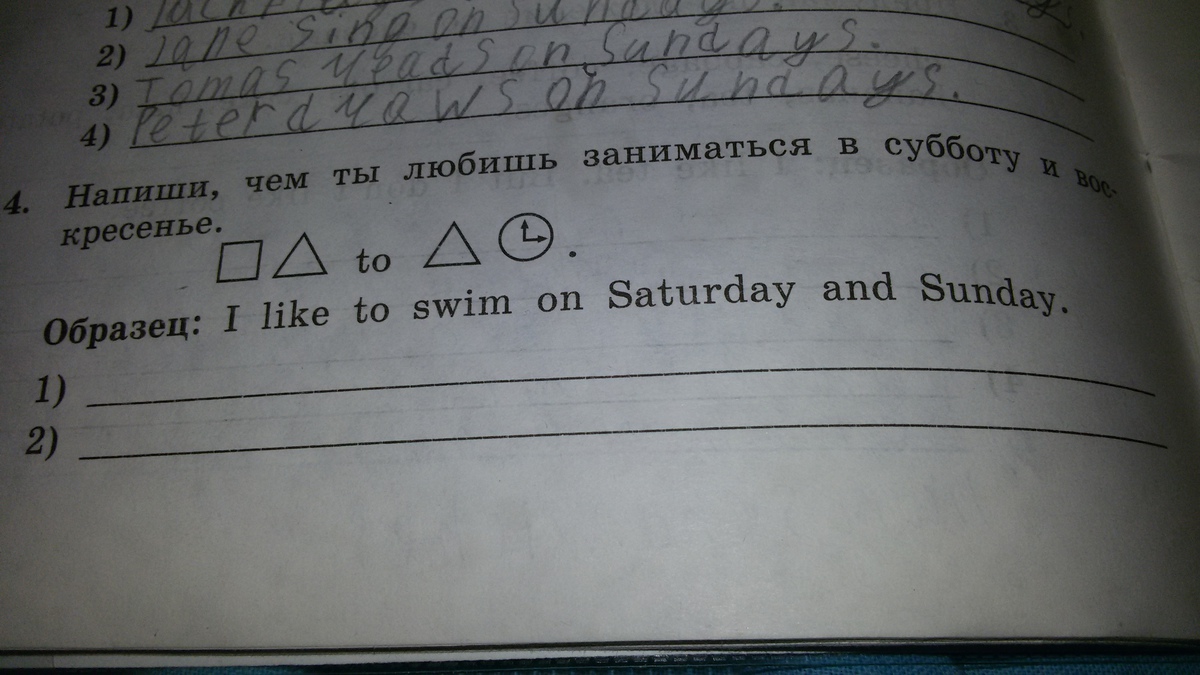 1) on Sundays.
2) Jane sing on Sundays.
3) Tomas reads on Sundays.
4) Peter draws on Sundays.
4. Напиши, чем ты любишь заниматься в субботу и вос-
кресенье.
to .
Образец: I like to swim on Saturday and Sunday.
1)
2)